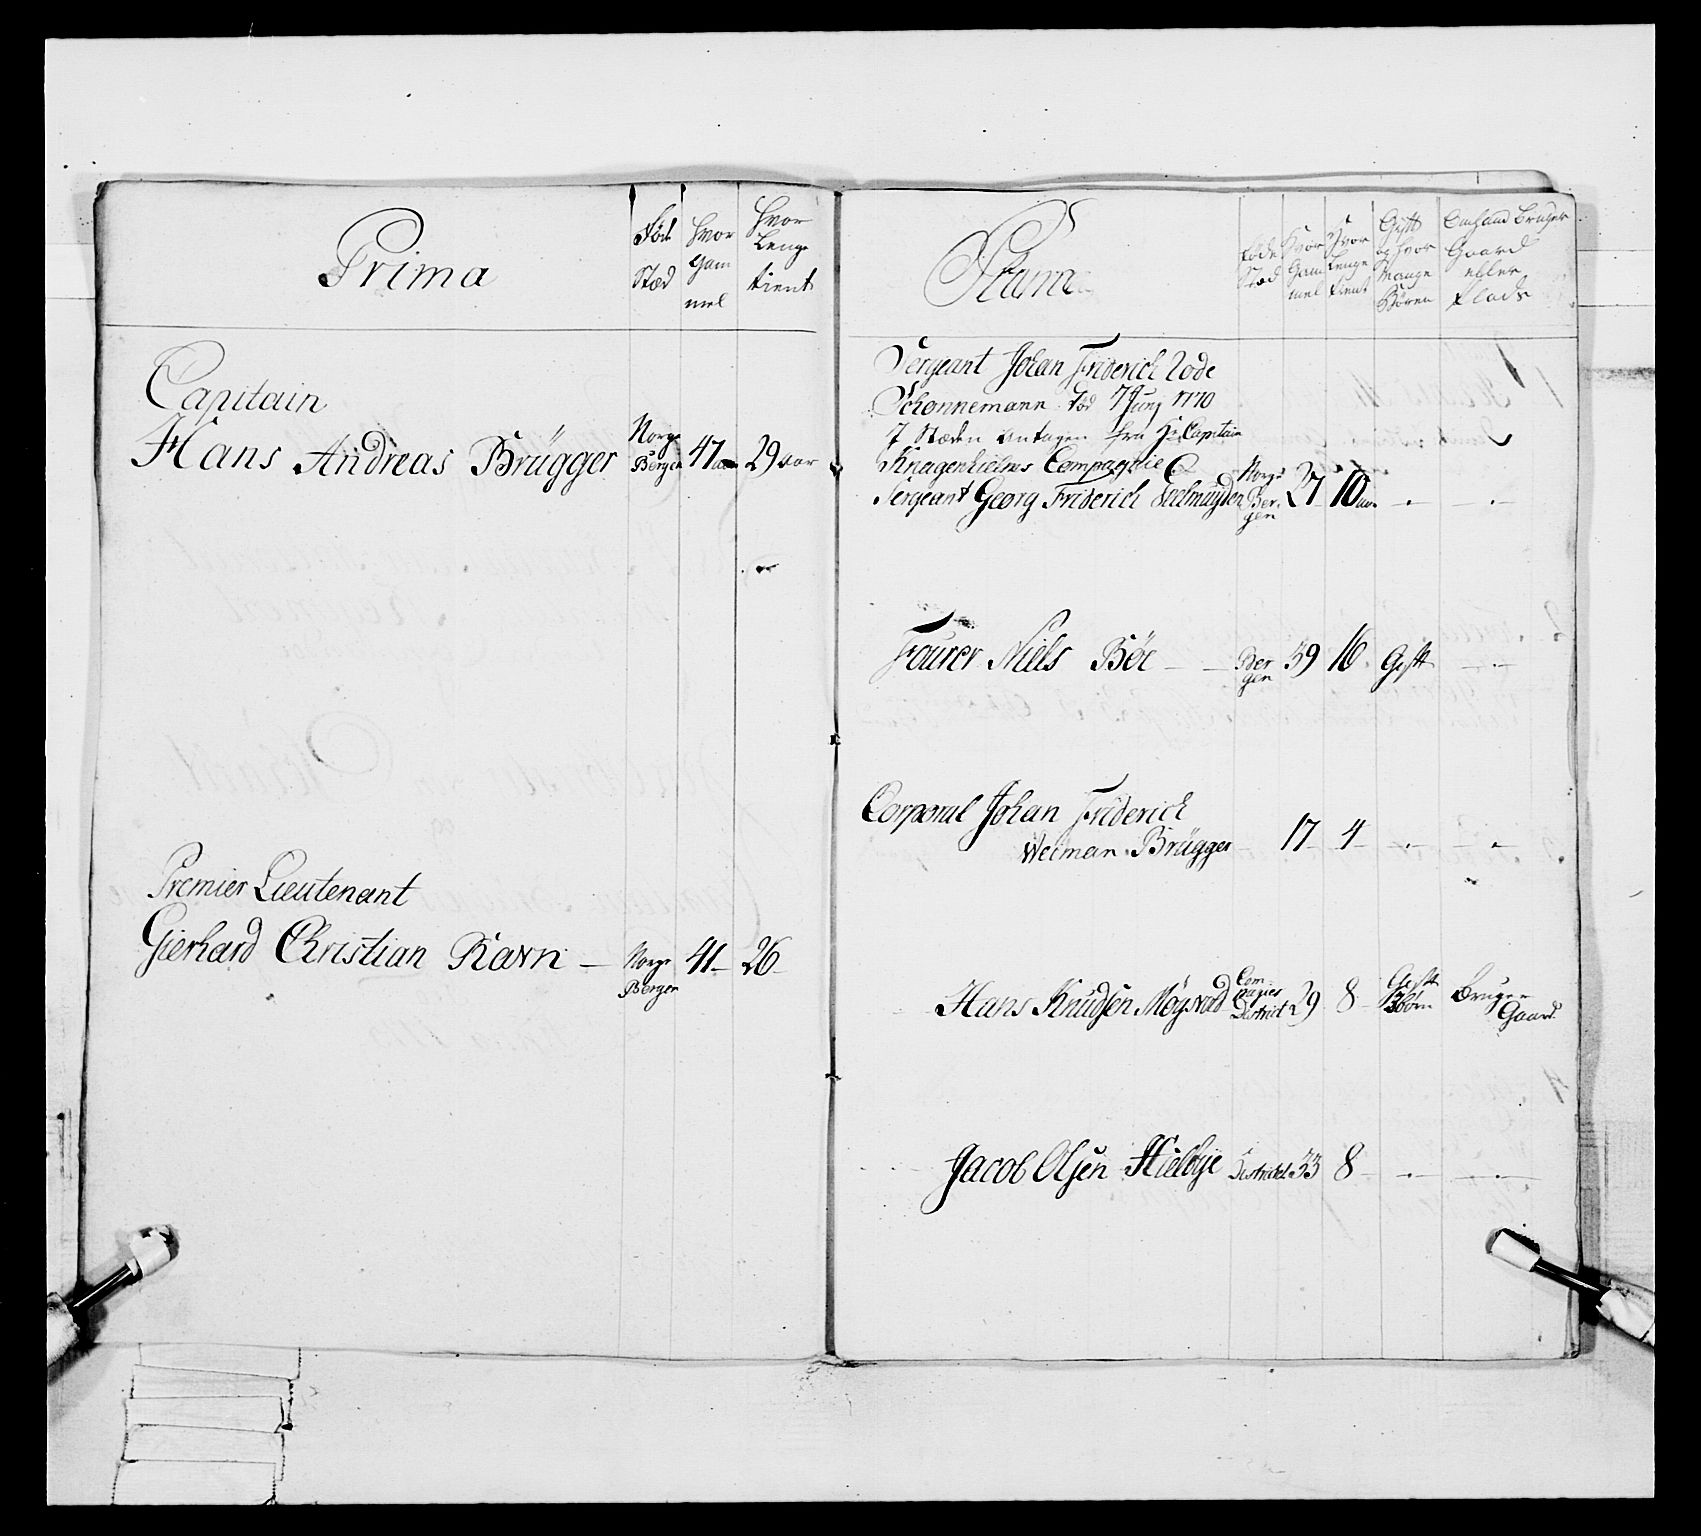 Prima
Fød Stæd
Hvor Gam mel
Hvor Lenge tient
Capitain
Hans Andreas Brügger Norge Bergen 47 aar 29 aar
Premier Lieutenant
Gierhard Christian Ravn – Norge Bergen 41 – 26 –
Føde Stæd
Hvor Gam mel
Hvor Lenge tient
Gift og hvor Mange Børen
Bruger Gaard eller Plads
Sergeant Johan Friderich
Schonnemann Død 7 Junj 1770
J Stæden antagen fra Capitain
Knagenhielms Compagnie
Sergeant Georg Friderich Norge Bergen 27 10 aar – –
Fourer Niels Böe – – Bergen 39 16 Gift –
Corporal Johan Friderich
Weiman Brügger – 17 – 4 – – –
Hans Knudsen Møgsvold Com pagnies District 29 8 – Gift Børn Bruger Gaard
Jacob Olsen District 33 8 – – –